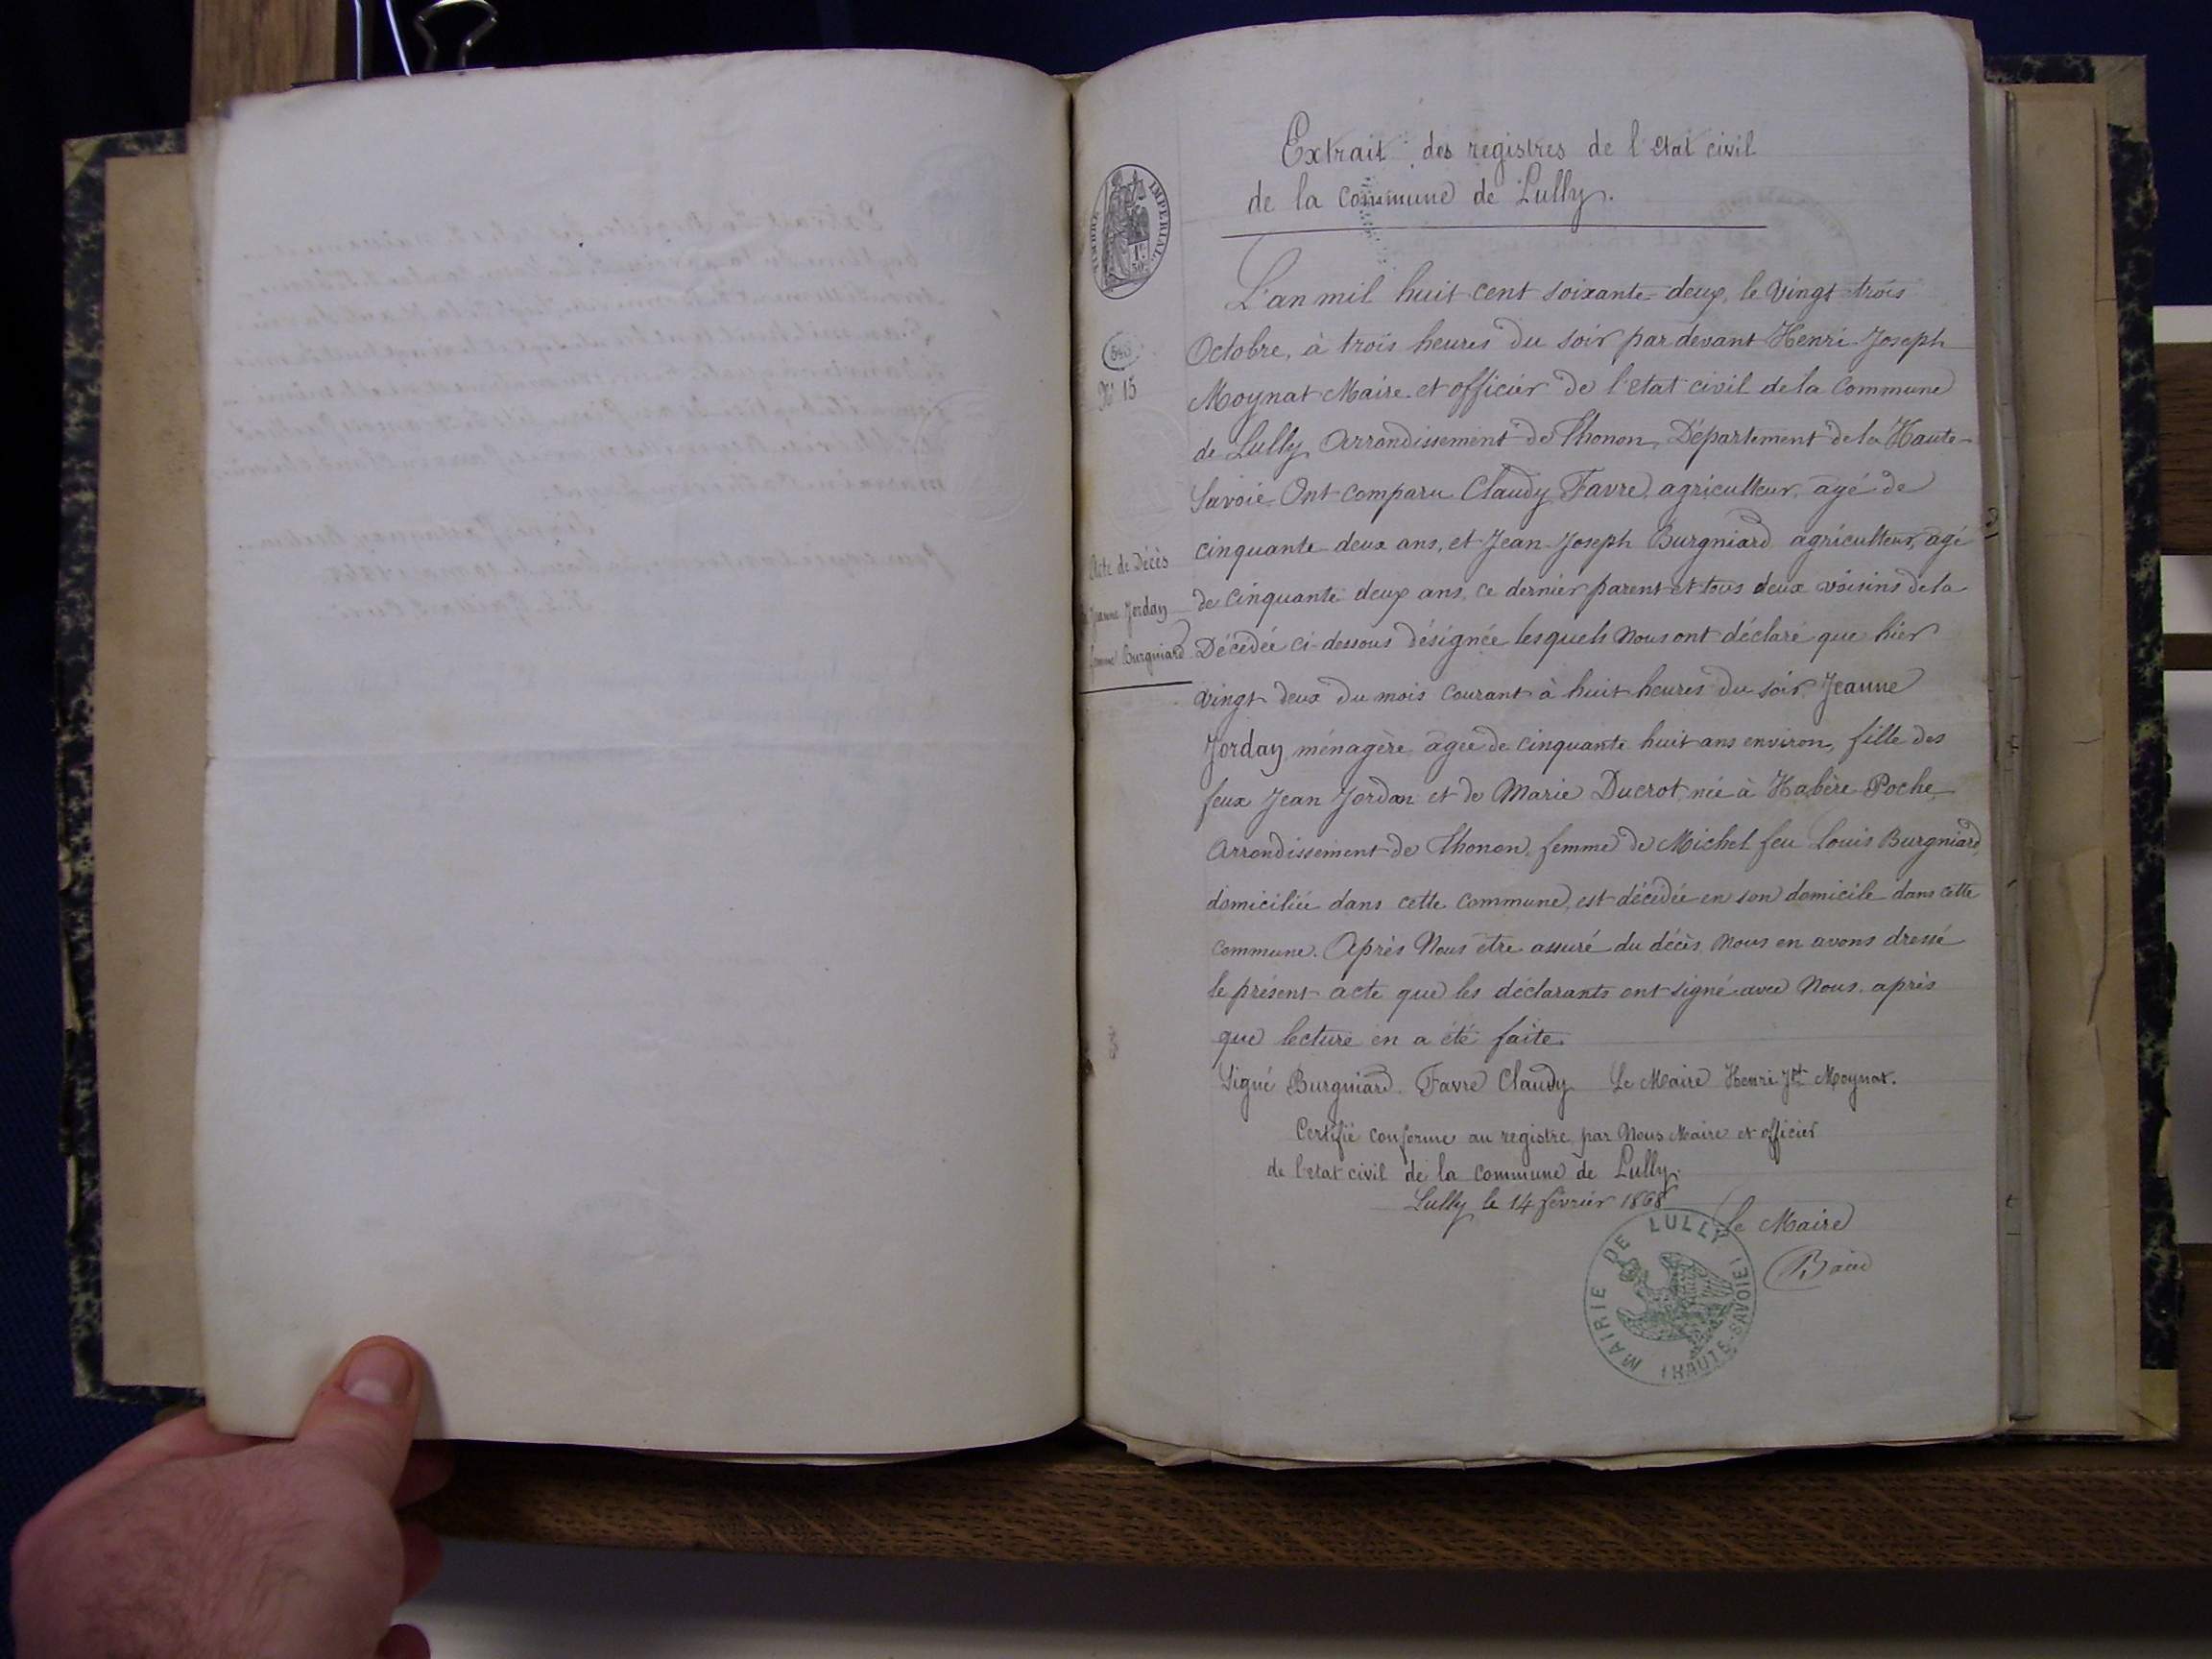 Extrait des registres de l'etat civil
de la commune de Lully.
TIMBRE IMPERIAL
1F
50c
L'an mil huit cent soixante-deux, le vingt-trois
N° 15
Octobre, à trois heures du soir par devant Henri Joseph
Moynat Maire et officier de l'etat civil de la Commune
de Lully Arrondissement de Thonon, Département de la Haute-
Savoie Ont comparu Claudy Favre, agriculteur, agé de
cinquante deux ans, et Jean-Joseph Burgniard agriculteur, agé
de cinquante deux ans, ce dernier parent et tous deux voisins de la
Décédée ci-dessous désignée lesquels Nous ont déclaré que hier
vingt deux du mois courant à huit heures du soir, Jeanne
Acte de Décès
Jeanne Jorday
femme Burgniard
Jorday ménagère agée de cinquante huit ans environ, fille des
feux Jean Jordan et de Marie Ducrot, née à Habère-Poche
Arrondissement de Thonon, femme de Michel feu Louis Burgniard,
domiciliée dans cette commune, est décédée en son domicile dans cette
commune. Après Nous être assuré du décès, Nous en avons dressé
le présent acte que les déclarants ont signé avec Nous, après
que lecture en a été faite.
Signé Burgniard. Favre Claudy Le Maire Henri Jh Moynat.
Certifié conforme au registre, par Nous Maire et officier
de l'etat civil de la commune de Lully.
Lully le 14 février 1868
Le Maire
MAIRIE DE LULLY (HAUTE-SAVOIE)